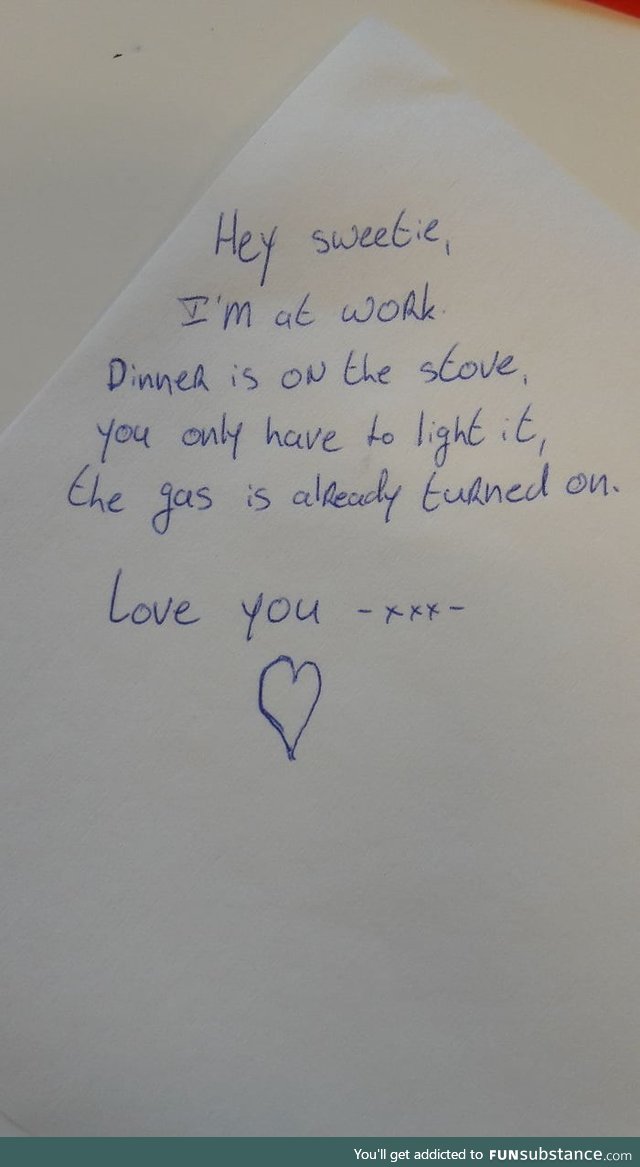 Hey sweetie,
I'm at work.
Dinner is on the stove,
you only have to light it,
the gas is already turned on.
Love you -xxx-
You'll get addicted to FUNsubstance.com